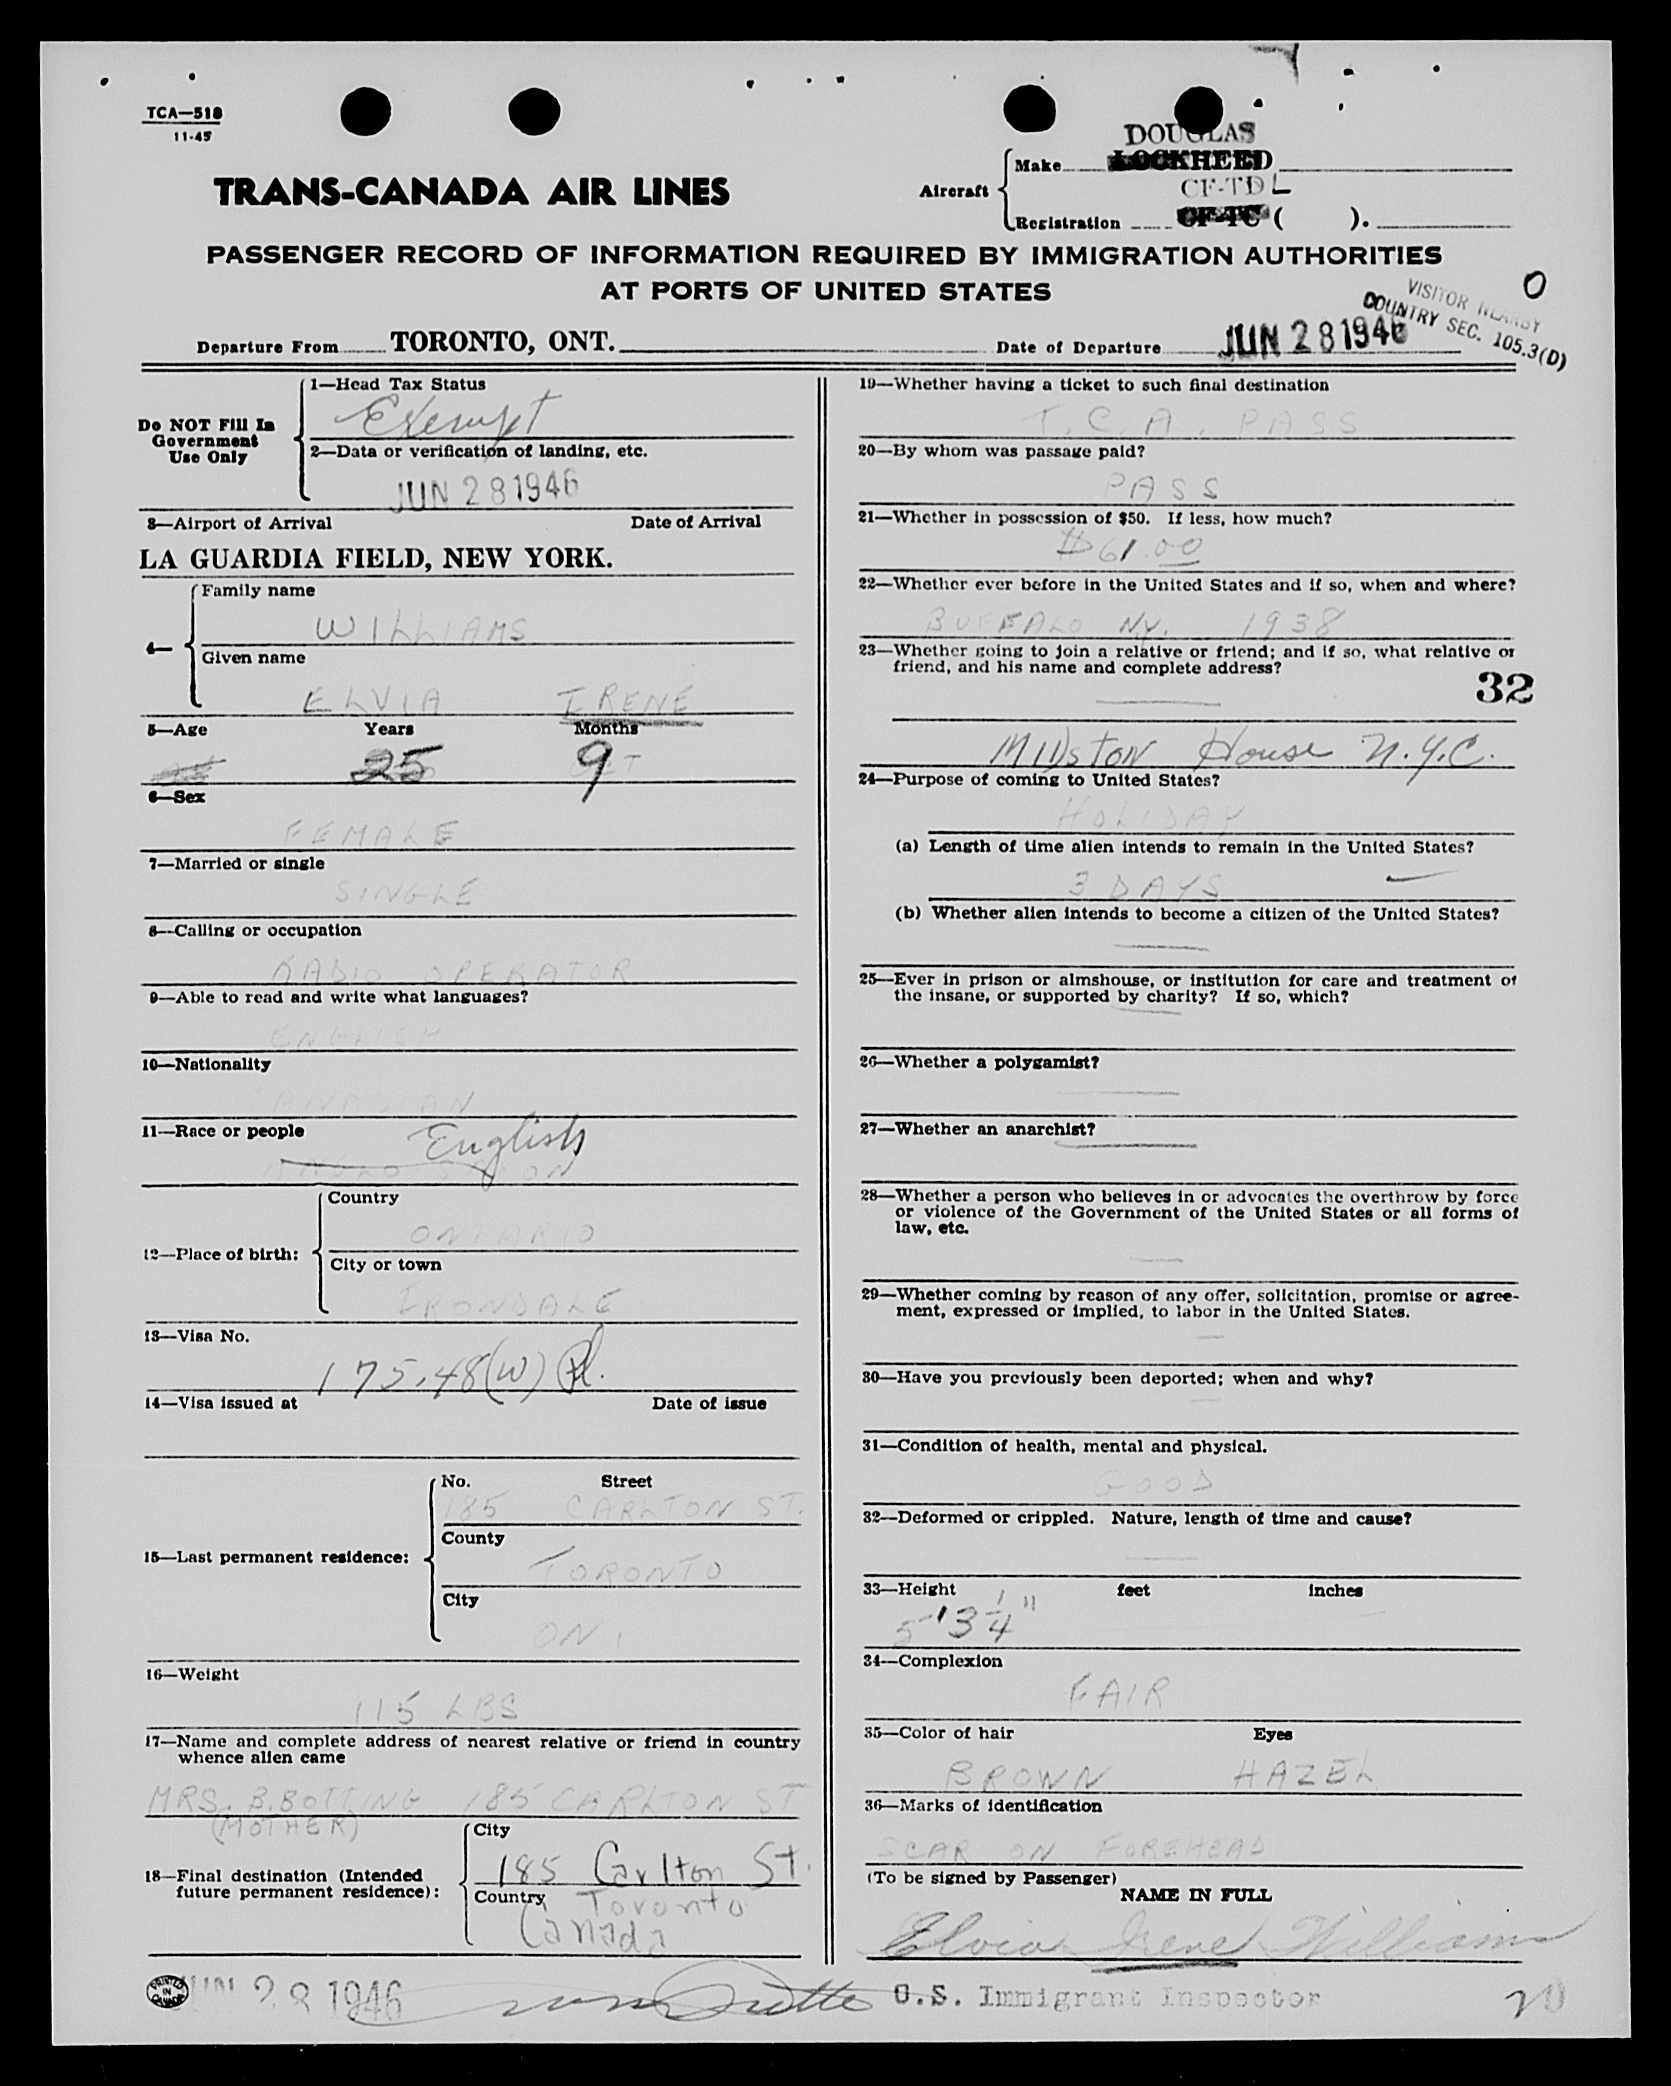 TCA—518
11-45
TRANS-CANADA AIR LINES
Aircraft
Make
DOUGLAS
LOCKHEED
CF-TDL
Registration CF-TC ( ).
PASSENGER RECORD OF INFORMATION REQUIRED BY IMMIGRATION AUTHORITIES
AT PORTS OF UNITED STATES
O
VISITOR NEARBY
COUNTRY SEC. 105.3(D)
Departure From TORONTO, ONT. Date of Departure JUN 28 1946
Do NOT Fill In
Government
Use Only
1—Head Tax Status
Exempt
2—Data or verification of landing, etc.
JUN 28 1946
3—Airport of Arrival Date of Arrival
LA GUARDIA FIELD, NEW YORK.
4—
Family name
WILLIAMS
Given name
ELVIA IRENE
5—Age Years Months
25 9
6—Sex
FEMALE
7—Married or single
SINGLE
8—Calling or occupation
RADIO OPERATOR
9—Able to read and write what languages?
ENGLISH
10—Nationality
CANADIAN
11—Race or people
English
ANGLO SAXON
12—Place of birth:
Country
ONTARIO
City or town
IRONDALE
13—Visa No.
175.48(W)
14—Visa issued at Date of issue
15—Last permanent residence:
No. Street
185 CARLTON ST.
County
TORONTO
City
ONT
16—Weight
115 LBS
17—Name and complete address of nearest relative or friend in country
whence alien came
MRS. B. BOTTING 185 CARLTON ST
(MOTHER)
18—Final destination (Intended
future permanent residence):
City
185 Carlton St.
Country Toronto
Canada
19—Whether having a ticket to such final destination
T.C.A. PASS
20—By whom was passage paid?
PASS
21—Whether in possession of $50. If less, how much?
$61.00
22—Whether ever before in the United States and if so, when and where?
BUFFALO N.Y. 1938
23—Whether going to join a relative or friend; and if so, what relative or
friend, and his name and complete address?
32
Millston House N.Y.C.
24—Purpose of coming to United States?
HOLIDAY
(a) Length of time alien intends to remain in the United States?
3 DAYS
(b) Whether alien intends to become a citizen of the United States?
25—Ever in prison or almshouse, or institution for care and treatment of
the insane, or supported by charity? If so, which?
26—Whether a polygamist?
27—Whether an anarchist?
28—Whether a person who believes in or advocates the overthrow by force
or violence of the Government of the United States or all forms of
law, etc.
29—Whether coming by reason of any offer, solicitation, promise or agree-
ment, expressed or implied, to labor in the United States.
30—Have you previously been deported; when and why?
31—Condition of health, mental and physical.
GOOD
32—Deformed or crippled. Nature, length of time and cause?
33—Height feet inches
5'3 1/4"
34—Complexion
FAIR
35—Color of hair Eyes
BROWN HAZEL
36—Marks of identification
SCAR ON FOREHEAD
(To be signed by Passenger)
NAME IN FULL
Elvia Irene Williams
PRINTED IN CANADA
JUN 28 1946
U.S. Immigrant Inspector
20